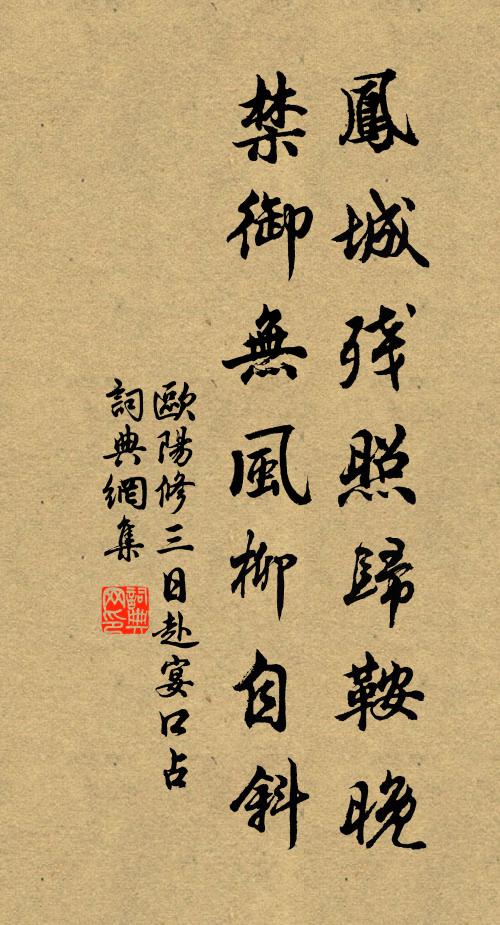 鳳城残照歸鞍晚
禁御無風柳自斜
歐陽修三日赴宴口占
詞典網集
詞典
网印